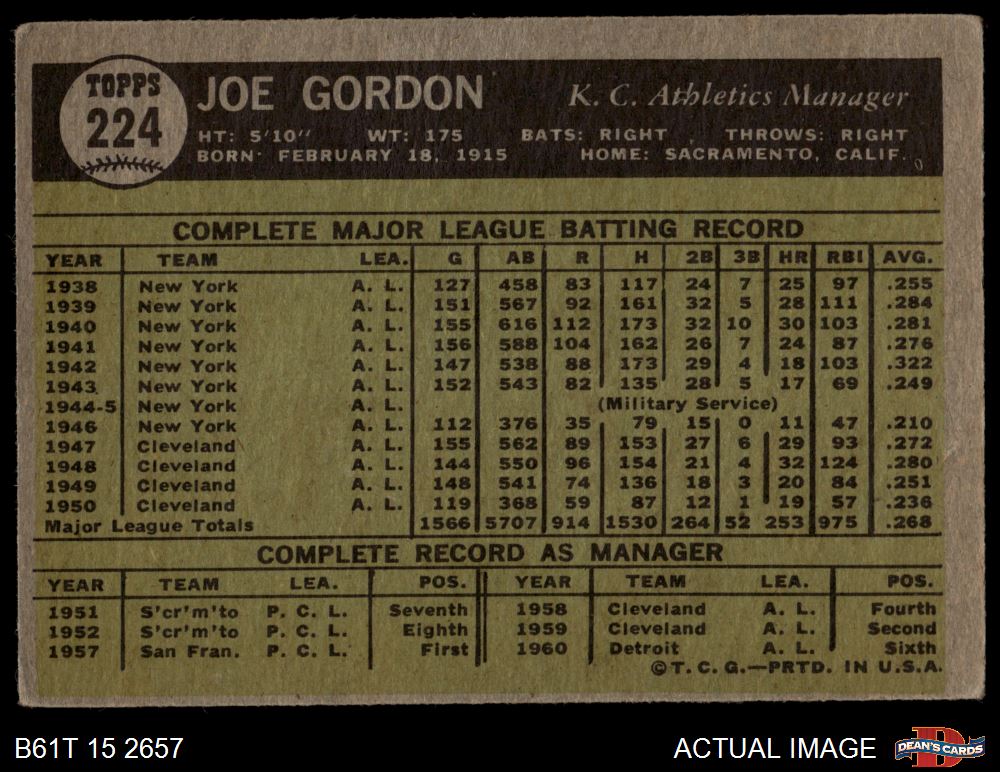 TOPPS
224
JOE GORDON K. C. Athletics Manager
HT: 5'10" WT: 175 BATS: RIGHT THROWS: RIGHT
BORN: FEBRUARY 18, 1915 HOME: SACRAMENTO, CALIF.
COMPLETE MAJOR LEAGUE BATTING RECORD
YEAR TEAM LEA. G AB R H 2B 3B HR RBI AVG.
1938 New York A. L. 127 458 83 117 24 7 25 97 .255
1939 New York A. L. 151 567 92 161 32 5 28 111 .284
1940 New York A. L. 155 616 112 173 32 10 30 103 .281
1941 New York A. L. 156 588 104 162 26 7 24 87 .276
1942 New York A. L. 147 538 88 173 29 4 18 103 .322
1943 New York A. L. 152 543 82 135 28 5 17 69 .249
1944-5 New York A. L. (Military Service)
1946 New York A. L. 112 376 35 79 15 0 11 47 .210
1947 Cleveland A. L. 155 562 89 153 27 6 29 93 .272
1948 Cleveland A. L. 144 550 96 154 21 4 32 124 .280
1949 Cleveland A. L. 148 541 74 136 18 3 20 84 .251
1950 Cleveland A. L. 119 368 59 87 12 1 19 57 .236
Major League Totals 1566 5707 914 1530 264 52 253 975 .268
COMPLETE RECORD AS MANAGER
YEAR TEAM LEA. POS. YEAR TEAM LEA. POS.
1951 S'cr'm'to P. C. L. Seventh 1958 Cleveland A. L. Fourth
1952 S'cr'm'to P. C. L. Eighth 1959 Cleveland A. L. Second
1957 San Fran. P. C. L. First 1960 Detroit A. L. Sixth
©T. C. G.—PRTD. IN U.S.A.
B61T 15 2657 ACTUAL IMAGE DEAN'S CARDS